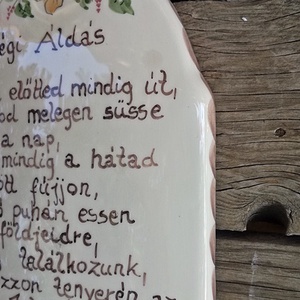 égi Áldás
előtted mindig út,
od melegen süsse
a nap,
mindig a hátad
ött fújjon,
ő puhán essen
földjeidre,
találkozunk,
zzon tenyerén az